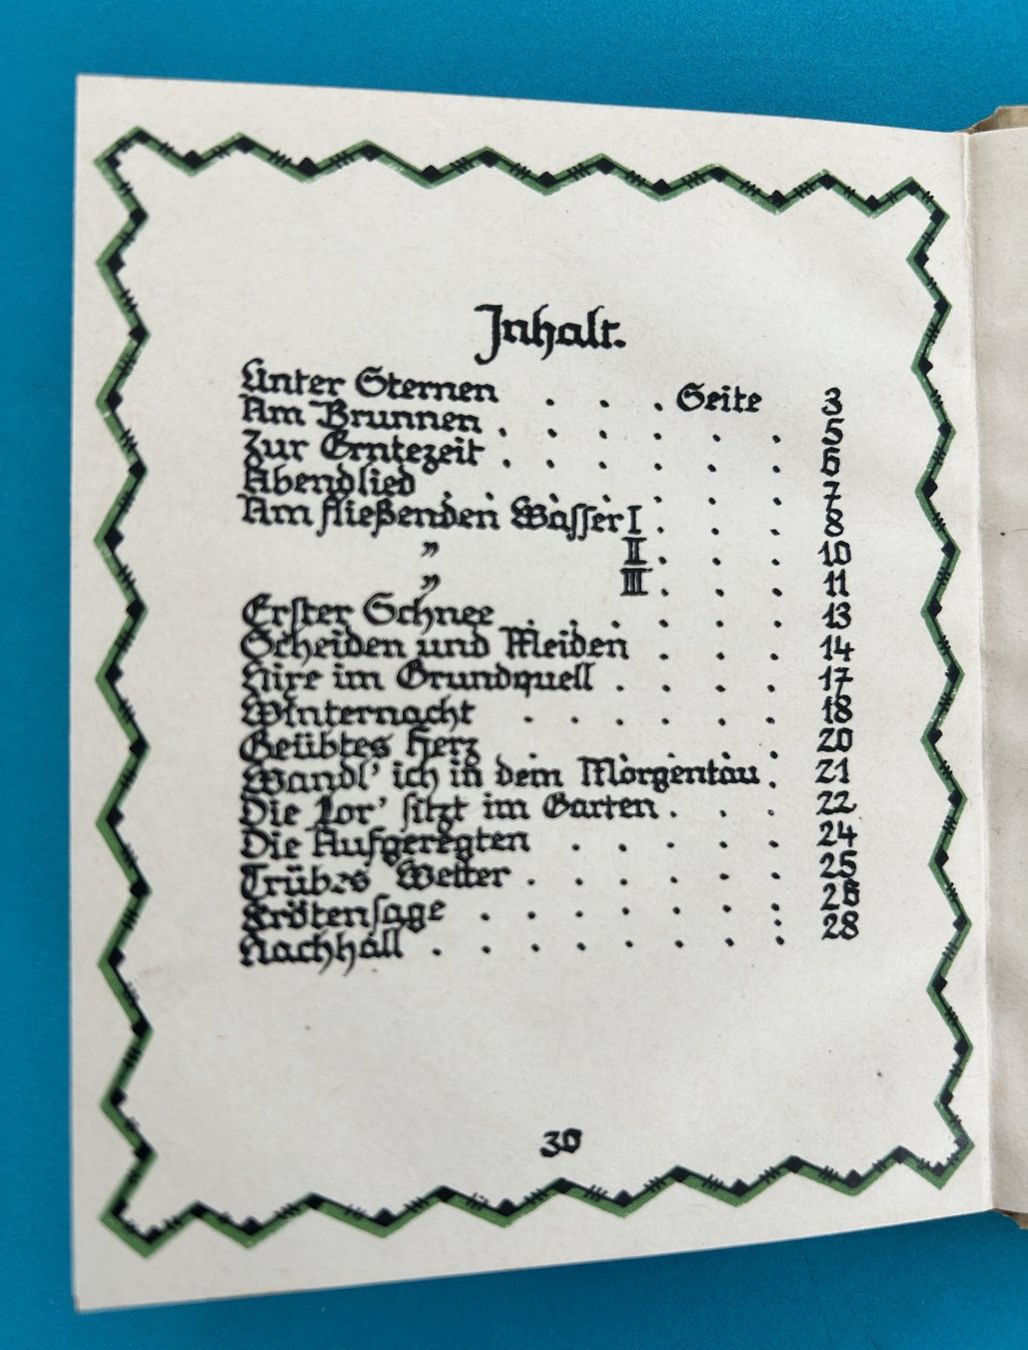 Inhalt.
Unter Sternen . . . Seite 3
Am Brunnen . . . . . . 5
Zur Erntezeit . . . . . . 6
Abendlied . . . . . . . 7
Am fließenden Waſſer I . . . 8
" II . . . 10
" III . . . 11
Erſter Schnee . . . . . . 13
Scheiden und Meiden . . . 14
Nixe im Grundquell . . . . 17
Winternacht . . . . . . 18
Geübtes Herz . . . . . . 20
Wandl' ich in dem Morgentau . 21
Die Lor' ſitzt im Garten . . . 22
Die Aufgeregten . . . . . 24
Trübes Wetter . . . . . . 25
Krötenſage . . . . . . . 26
Nachhall . . . . . . . . 28
30